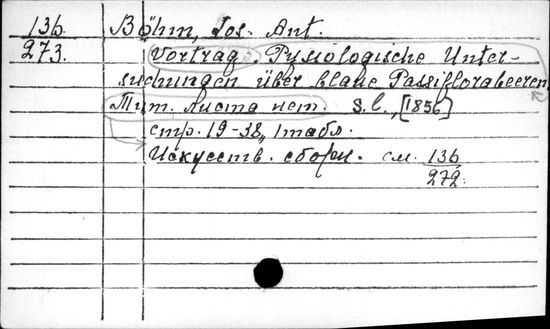 136. Böhm, Jos. Ant.
273. Vortrag. Pysiologische Unter-
suchungen über blaue Passiflorabeeren.
Тит. листа нет. S.l., [1856]
стр. 19-38, 1 табл.
Искусств. сборн. см. 136
272.